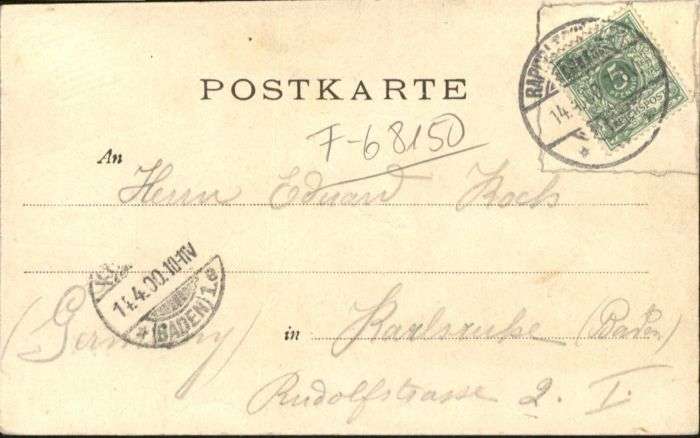 POSTKARTE
5
F-68150
An
Herrn Eduard Koch
14.4.00.10-11V
(BADEN) 1.e
(Germany)
in Karlsruhe (Baden)
Rudolfstrasse 2. I.